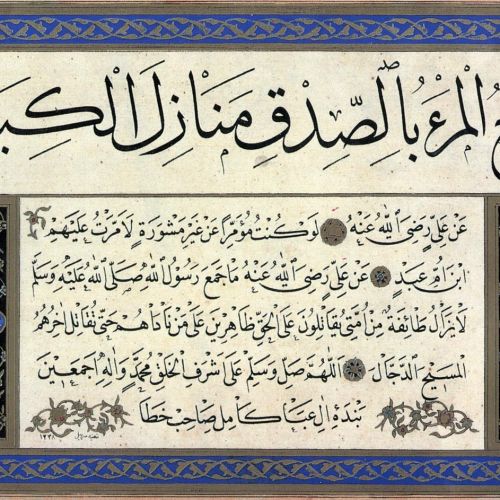 المرء بالصدق منازل الكبا
عن علي رضي الله عنه لو كنت مؤمرا عن غير مشورة لامرت عليهم
ابن ام عبد عن علي رضي الله عنه ما جمع رسول الله صلى الله عليه وسلم
لا يزال طائفة من امتي يقاتلون على الحق ظاهرين على من ناداهم حتى يقاتل اخرهم
المسيح الدجال اللهم صل وسلم على اشرف الخلق محمد واله اجمعين
بنده ال عبا كامل صاحب خطا
١٣٣٨